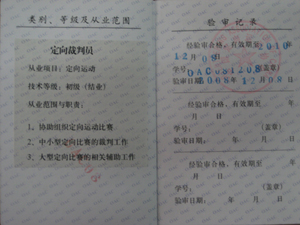 类别、等级及从业范围
定向裁判员
从业项目：定向运动
技术等级：初级（结业）
从业范围与职责：
1、协助组织定向运动比赛
2、中小型定向比赛的裁判工作
3、大型定向比赛的相关辅助工作
验审记录
经验审合格，有效期至2010
12月08日
学号：OAC081208（盖章）
验审日期：2008年12月08日
经验审合格，有效期至 年
月 日
学号： （盖章）
验审日期： 年 月 日
经验审合格，有效期至 年
月 日
学号： （盖章）
验审日期： 年 月 日